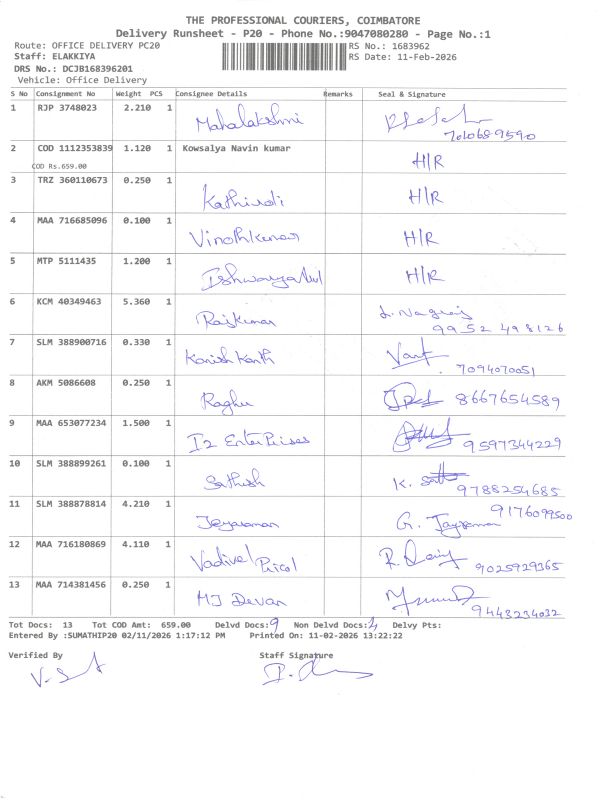 THE PROFESSIONAL COURIERS, COIMBATORE
Delivery Runsheet - P20 - Phone No.:9047080280 - Page No.:1
Route: OFFICE DELIVERY PC20 RS No.: 1683962
Staff: ELAKKIYA RS Date: 11-Feb-2026
DRS No.: DCJB168396201
Vehicle: Office Delivery
S No Consignment No Weight PCS Consignee Details Remarks Seal & Signature
1 RJP 3748023 2.210 1 Mahalakshmi
2 COD 1112353839 1.120 1 Kowsalya Navin kumar H/R
COD Rs.659.00
3 TRZ 360110673 0.250 1 H/R
4 MAA 716685096 0.100 1 Vinothkumar H/R
5 MTP 5111435 1.200 1 H/R
6 KCM 40349463 5.360 1 Rajkumar
9952498126
7 SLM 388900716 0.330 1 Kanishkanth
7094070051
8 AKM 5086608 0.250 1 Raghu 8667654589
9 MAA 653077234 1.500 1 I2 EnterPrises 9597344229
10 SLM 388899261 0.100 1 Sathish K. 9788254685
11 SLM 388878814 4.210 1 Jeyaraman G. 9176099500
12 MAA 716180869 4.110 1 Vadivel Pricol R.
9025929365
13 MAA 714381456 0.250 1 MJ Devan
9443234032
Tot Docs: 13 Tot COD Amt: 659.00 Delvd Docs: 9 Non Delvd Docs: 4 Delvy Pts:
Entered By :SUMATHIP20 02/11/2026 1:17:12 PM Printed On: 11-02-2026 13:22:22
Verified By Staff Signature